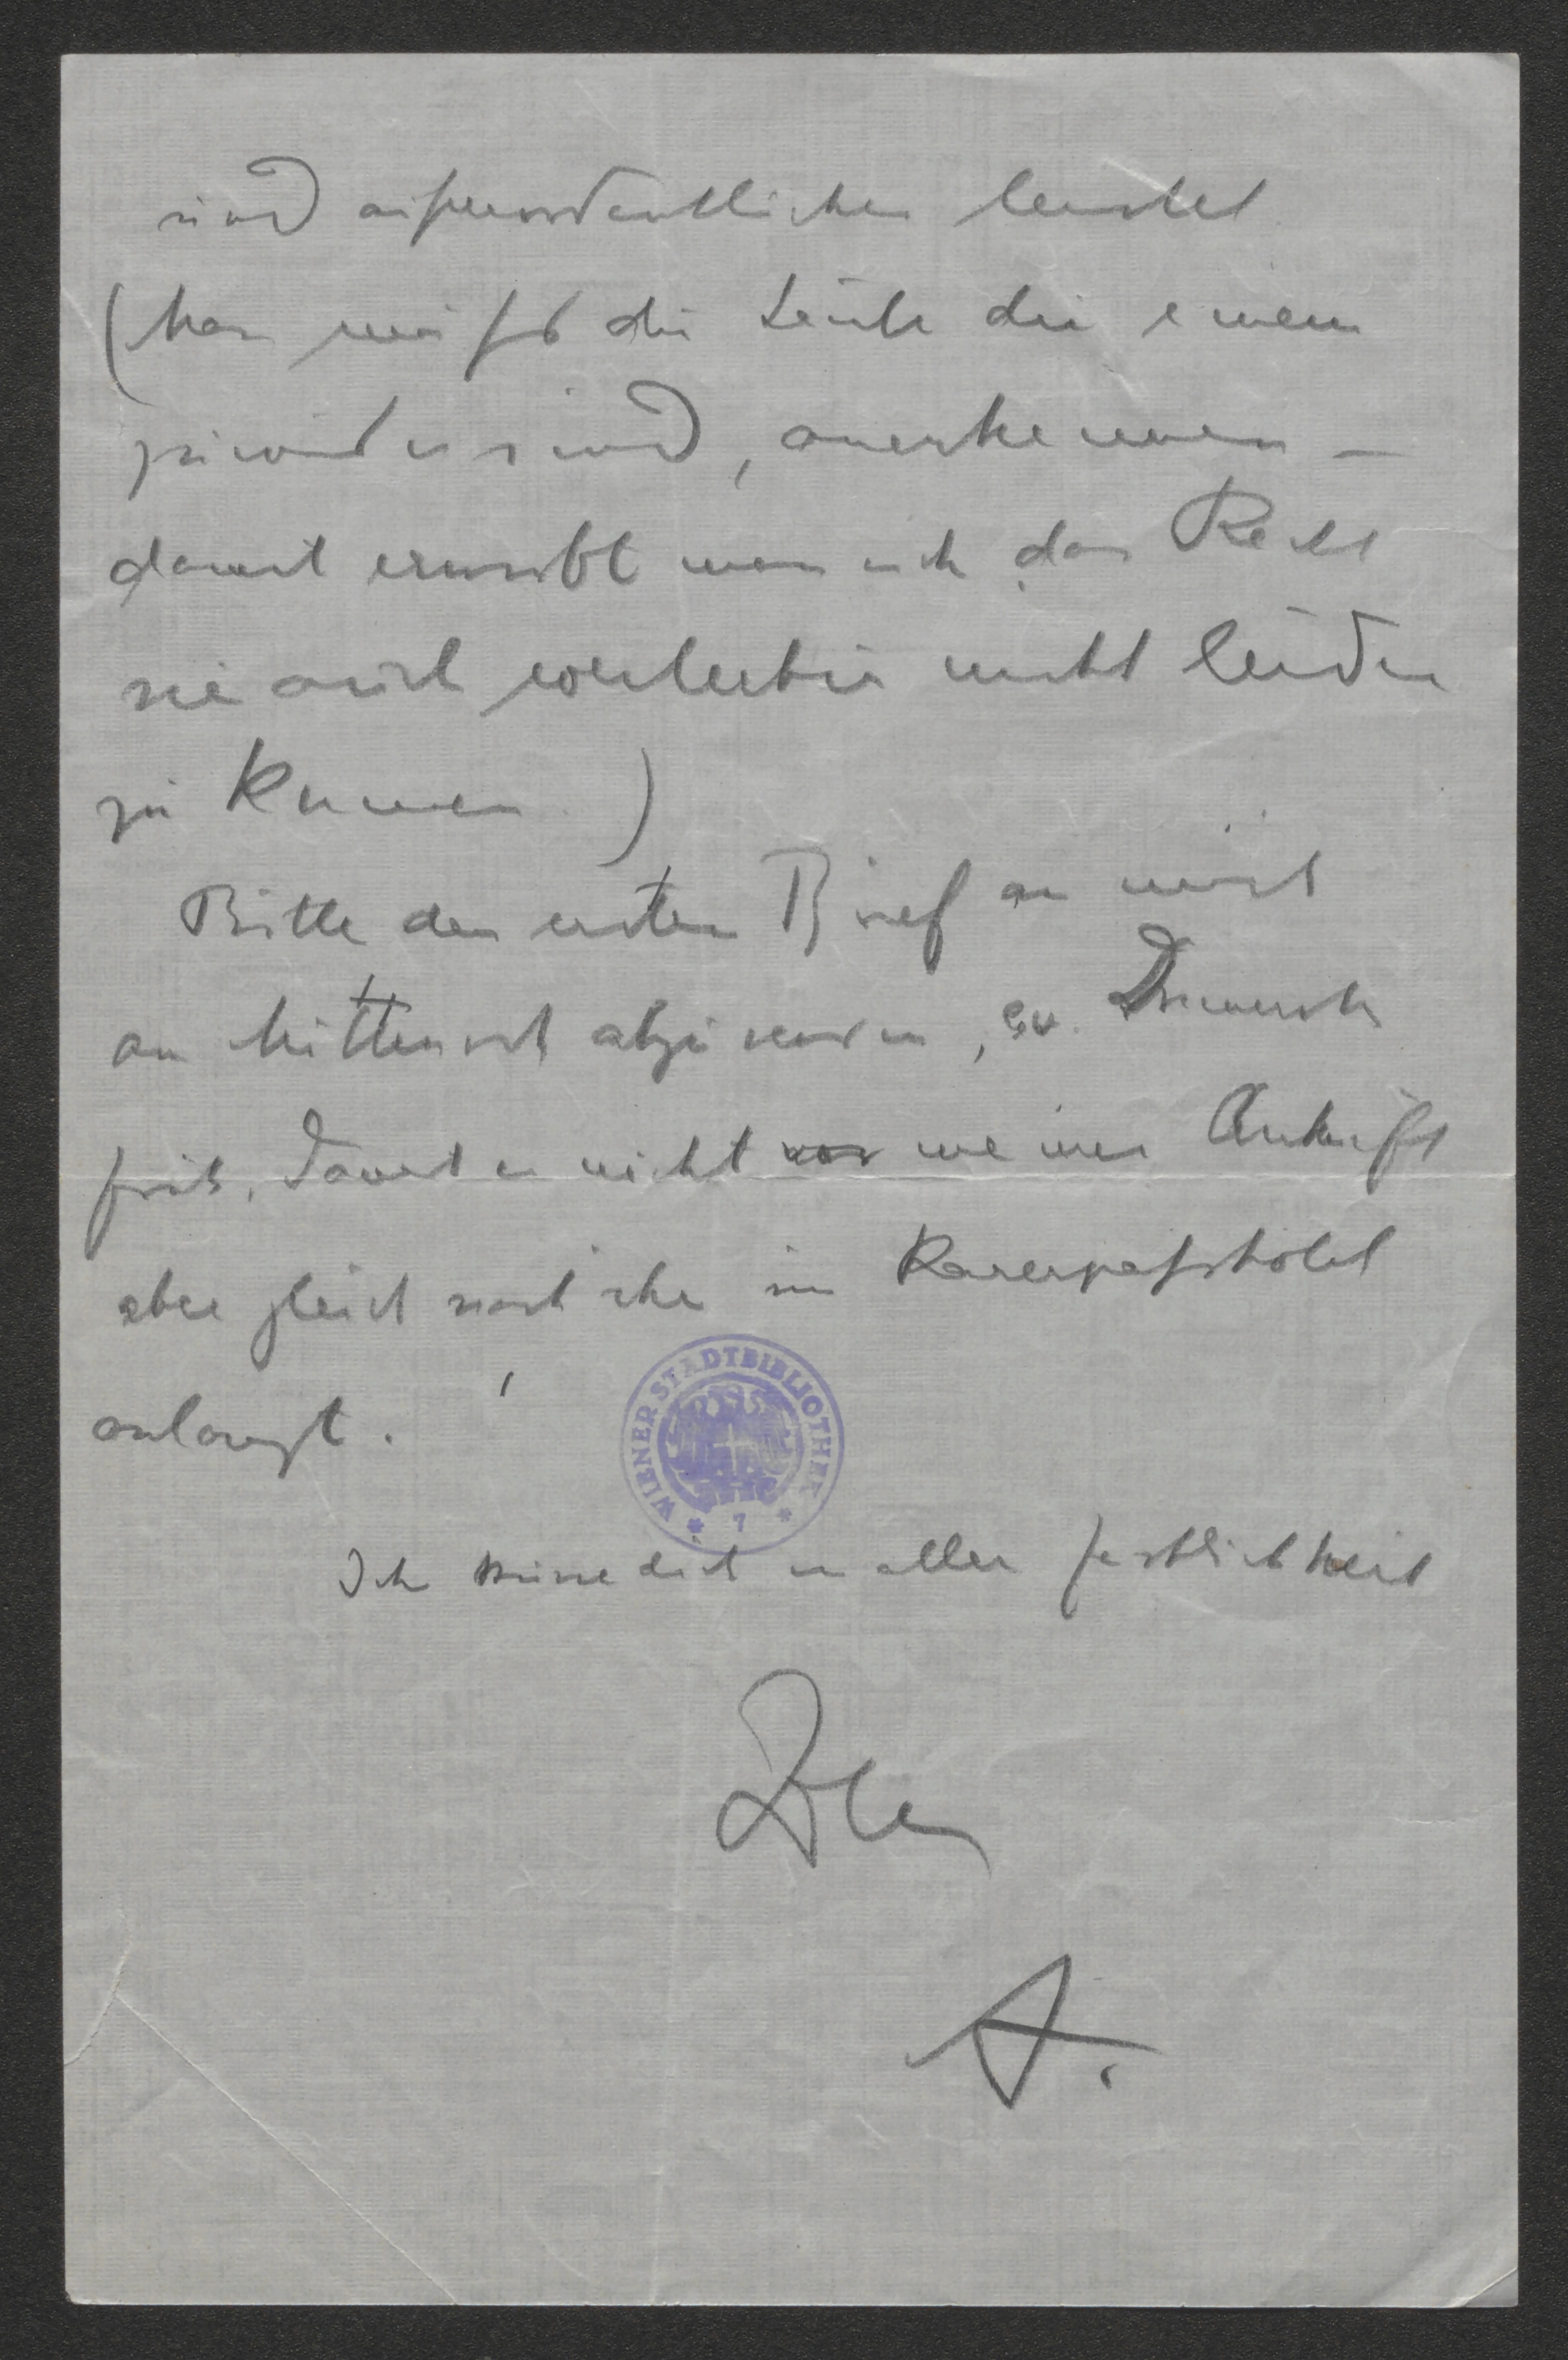 sind außerordentlichen
(Man muß die Leute die einem
zuwider sind, anerkennen –
damit erwirbt man sich das Recht
sie auch weiterhin nicht leiden
zu können)
Bitte den ersten Brief an mich
am Mittwoch abzusenden, ev. Donnerstg
früh, damit er nicht vor meiner Ankunft
aber gleich nachher im Karerpaßhotel
anlangt.
WIENER STADTBIBLIOTHEK
* 7 *
Ich küsse dich in aller
Dein
A.